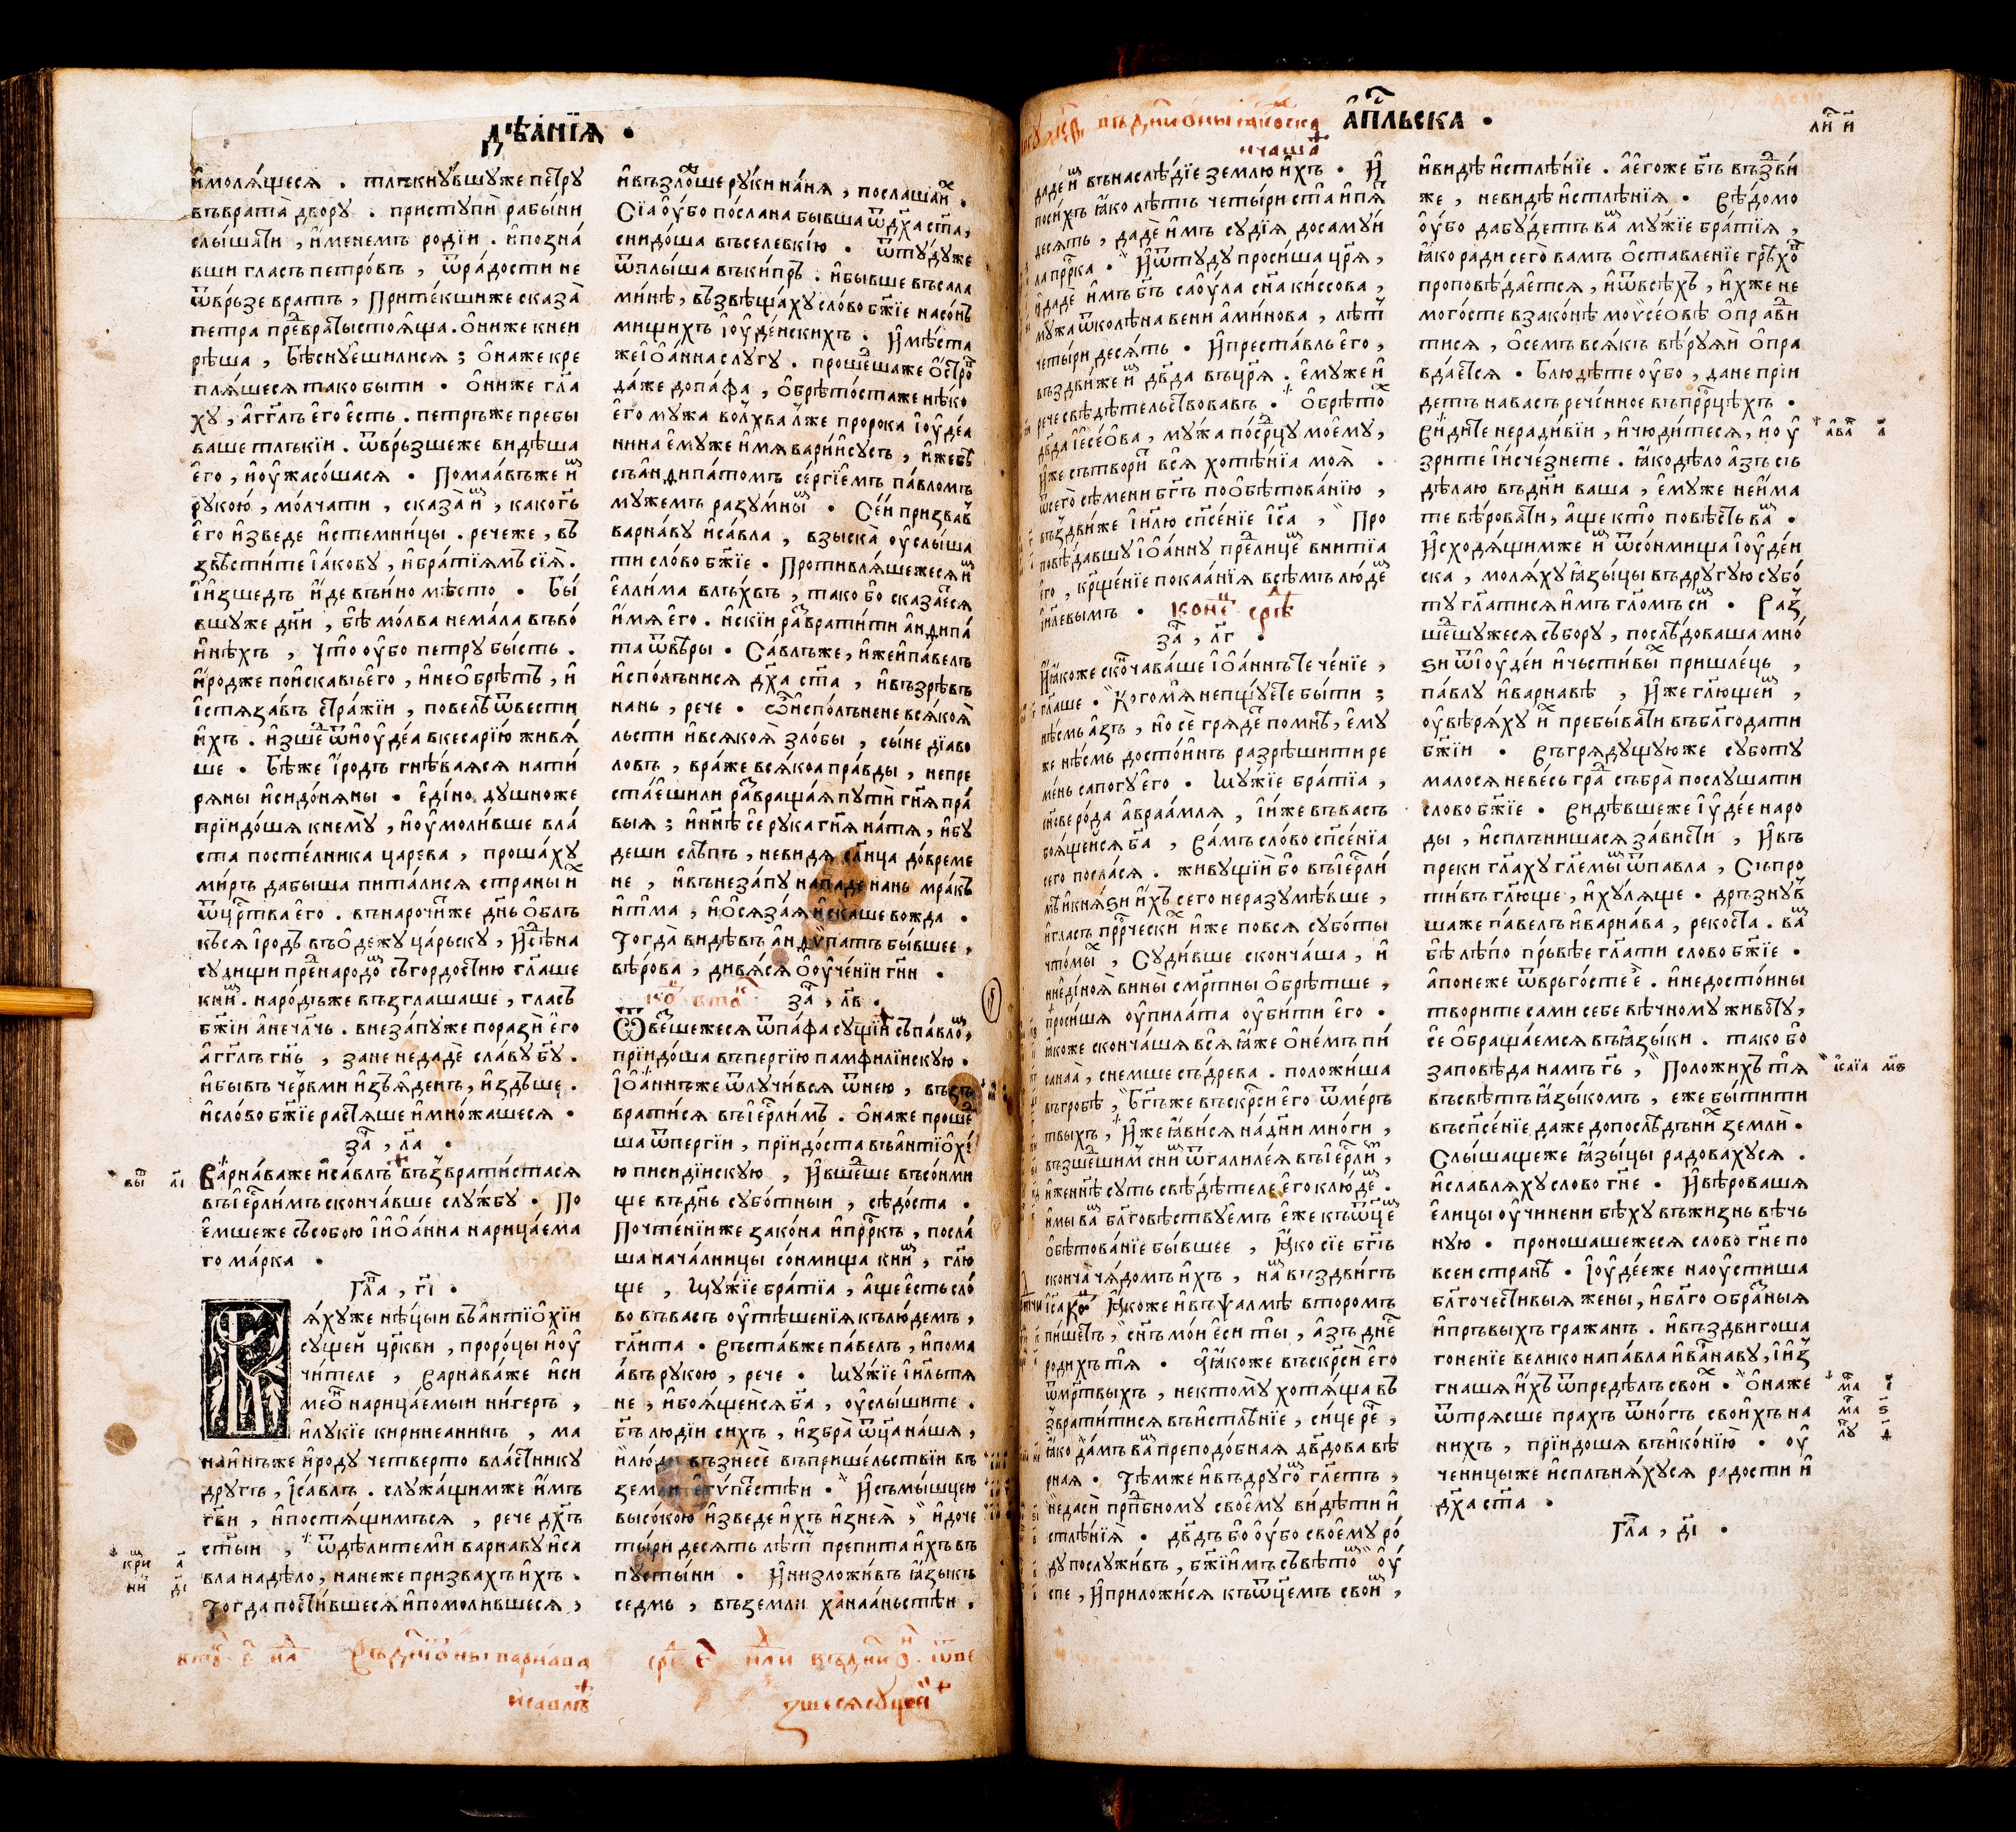 дѣѧ́нїѧ •
и҆молѧ́щесѧ . тлъкнꙋ́вшꙋже петрꙋ
въврата̀ дворꙋ . пристꙋпѝ рабы́ни
слы́шати , и҆́менемъ роді́и . и҆позна́
вши гласъ петро́въ , ѿра́дости не
ѿвръ́зе вратъ , Прите́кшиже сказа̀
петра пред̾враты̀стоѧ́ща . О҆ниже кнеи
рѣ́ша , Бѣснꙋ́ешилисѧ ; О҆наже кре
плѧ́шесѧ тако быти • О҆ниже гл҃а
хꙋ , а҆гг҃лъ его̀ е҆́сть . петръже пребы
ваше тлъкі́и . ѿвръ́зшеже видѣша
е҆го , и҆ᲂу҆жасо́шасѧ • Помаа́въже и҆м
рꙋкою , мо́лчати , сказа̀ и҆м , како гь҃
е҆го и҆зведе и҆стемни́цы . рече же , въ
звѣсти́те і҆а́ковꙋ , и҆бра́тїѧмъ сїѧ̀ .
І҆и҆зшедъ и҆́де въи́но мѣсто • Бы́
вшꙋже дн҃и , бѣ мо́лва нема́ла въво́
и҆нѣхъ , Что ᲂу҆бо петрꙋ бы́сть .
и҆́родже пои҆скавъ е҆го , и҆не О҆брѣтъ , и҆
і҆стѧза́въ стра́жїи , повелѣ̀ ѿвести
и҆хъ . и҆зшед̾ ѿи҆ᲂу҆де́а вкесарі́ю живѧ́
ше • Бѣже и҆́родъ гнѣ́ваѧсѧ нати́
рѧны и҆сидо́нѧны • є҆ди́но дꙋшноже
прїидо́шѧ кнемꙋ̀ , и҆ᲂу҆моли́вше вла́
ста посте́лника царева , проша́хꙋ
ми́ръ дабыша пита́лисѧ страны и҆х
ѿцр҃тва е҆го . внарочи́тыже дн҃ь О҆блъ
къ́сѧ і҆́родъ въО҆де́ждꙋ ца́рьскꙋ , И҆сѣ́на
сꙋдищи пред̾народом съгордостїю гл҃аше
кним . наро́дъже възглашаше , гласъ
бж҃їи а҆нечл҃чь . внеза́пꙋже поразѝ е҆го
а҆гг҃лъ гн҃ь , зане недадѐ сла́вꙋ бг҃ꙋ .
и҆бывъ че́рвьми и҆зъѧ́денъ , и҆здъше .
и҆сло́во бж҃їе растѧ́ше и҆мно́жашесѧ .
за҃ , л҃а •
Варна́важе и҆са́влъ възврати́стасѧ
въі҆ерл҃имъ сконча́вше слꙋ́жбꙋ . По
е҆мшеже събою І҆О҆а́нна нарица́ема
го ма́рка •
Гла҃ , г҃і •
ѧ́хꙋже нѣ́цыи ва҆нтїО҆хі́и
сꙋщей цр҃кви , проро́цы и҆ᲂу҆
чи́теле , Варна́важе и҆си
меО҆н нарица́емыи ни́геръ ,
и҆лꙋкїе кириниани́нъ , ма
наи́нъже и҆́родꙋ четверто вла́стникꙋ
дрꙋгъ , і҆са́влъ . слꙋжа́щимже и҆мъ
гв҃и , и҆постѧ́щимъсѧ , рече дх҃ъ
ст҃ыи , ѿдѣли́теми варнавꙋ и҆са
вла надѣло , нанеже призвахъ и҆́хъ .
Тогда пости́вшесѧ и҆помоли́вшесѧ ,
и҆възло́жше рꙋки на́нѧ , послаша и҆х .
Сїа ᲂу҆бо по́слана бывша ѿдх҃а ст҃а ,
снидо́ша въселевкі́ю • ѿтꙋ́дꙋже
ѿплы́ша въки́пръ . и҆бывше въсала
ми́нѣ , възвѣща́хꙋ сло́во бж҃їе насо́нъ
мищихъ І҆ᲂу҆де́искихъ . И҆мѣ́ста
жеІ҆О҆а́нна слꙋгꙋ . прошед̾шаже О҆стров
да́же допа́фа , О҆брѣто́стаже нѣ́ко
е҆го мꙋжа во́лхва лже пророка і҆ᲂу҆де́а
нина е҆мꙋже и҆́мѧ варии҆сꙋсъ , и҆́жебѣ
съа҆ндипа́томъ се́ргїемъ па́вломъ
мꙋжемъ разꙋ́мным • Се́й призвав
варна́вꙋ и҆са́вла , взыска̀ ᲂу҆слы́ша
ти сло́во бж҃їе • Противлѧ́шежесѧ и҆м
е҆ллі́ма влъ́хвъ , тако бо сказа́есѧ
и҆́мѧ е҆го . и҆ски́и развратити а҆ндипа́
та ѿвѣ́ры . Са́влъже , и҆́жеи҆павелъ
и҆спо́лънисѧ дх҃а ст҃а , и҆възрѣвъ
нань , рече • Ѽи҆спо́лънене всѧ́коѧ̀
льсти и҆всѧкоѧ зло́бы , сы́не дїаво
ловъ , вра́же всѧ́коа пра́вды , непре
ста́ешили развраща́ѧ пꙋтѝ гн҃ѧ пра́
выѧ ; и҆нн҃ѣ се рꙋка гн҃ѧ на́тѧ , и҆бꙋ
деши слѣ́пъ , невидѧ сл҃нца до́време
не , и҆въне́запꙋ нападе нань мракъ
и҆тма , и҆О҆сѧза́ѧ и҆скаше вожда •
Тогда̀ видѣвъ а҆ндѵ́патъ бы́вшее ,
вѣ́рова , дивѧ́сѧ О҆ᲂу҆че́нїи гн҃и •
за҃ , л҃в •
Ѿве́зшежесѧ ѿпа́фа сꙋщїи съпа́вло́м ,
прїидо́ша въпергі́ю памфилі́искꙋю .
І҆О҆а́ннъже ѿлꙋчи́всѧ ѿнею , възъ
врати́сѧ въі҆ерл҃имъ . О҆наже прошед̾
ша ѿпергі́и , прїидо́ста въа҆нтїО҆хі́
ю писиді́искꙋю , И҆вшед̾ше въсо́нми
ще въдн҃ь сꙋбо́тныи , сѣдо́ста .
Почте́нїиже зако́на и҆пр҃ркъ , посла́
ша нача́лницы со́нмища кним , гл҃ю
ще , Мꙋ́жїе бра́тїа , а҆ще е҆сть сло́
во въва́съ ᲂу҆тѣше́нїѧ къ лю́демъ ,
гл҃ита • Въста́вже па́велъ , и҆пома
а́въ рꙋкою , рече • Мꙋ́жїе І҆ил҃ьтѧ
не , и҆боѧ́щеисѧ бг҃а , ᲂу҆слы́шите .
бг҃ъ лю́дїи си́хъ , и҆збра̀ ѿца на́шѧ ,
и҆лю́ди възнесѐ въпришельствїи въ
земли е҆гѵпестѣи • И҆съмы́шцею
высо́кою и҆зведе и҆́хъ и҆знеѧ̀ , и҆до че
ты́ри десѧть лѣ́т препита и҆хъ въ
пꙋсты́ни • И҆низложи́въ ꙗ҆зыкъ
седмь , въземли ха́наа́ньстѣи ,
а҆пл҃ьска •
лн҃и
даде́ и҆м внаслѣ́дїе землю и҆хъ • И҆
поси́хъ ꙗ҆́ко лѣтъ четы́ри ста и҆пѧт
десѧть , дадѐ и҆мъ сꙋдїѧ̀ досамꙋи
ла пр҃рка . И҆ѿтꙋдꙋ проси́ша цр҃ѧ ,
и҆дадѐ и҆мъ бг҃ъ саО҆ꙋла сн҃а ки́ссова ,
мꙋжа ѿколѣ́на вени а҆ми́нова , лѣт
четы́ри десѧ́ть • И҆преста́вль е҆го ,
въздви́же и҆м дв҃да въцр҃ѧ . е҆мꙋже и҆
рече свѣдѣтельствовавъ . О҆брѣтох
дв҃да і҆есе́О҆ва , мꙋ́жа посрд҃цꙋ мое́мꙋ ,
и҆́же сътвори́т всѧ̀ хотѣ́нїа моѧ̀ .
ѿсего̀ сѣ́мени бг҃ъ поО҆бѣтова́нїю ,
въздви́же І҆ил҃ю сп҃се́нїе І҆с҃а , Про
повѣ́давшꙋ І҆О҆а́ннꙋ пред̾лице́м вни́тїа
е҆го , крщ҃е́нїе покаа́нїѧ всѣ́мъ лю́дем
і҆ил҃евымъ •
за҃ , л҃г •
И҆ꙗ҆́коже сконча́ваше І҆О҆а́ннъ те че́нїе ,
гл҃аше . Кого мѧ̀ непщꙋ́ете бы́ти ;
нѣ́смь а҆зъ , но се грѧде́т помнѣ̀ , е҆мꙋ
же нѣсмь досто́инъ разрѣши́ти ре
ме́нь сапогꙋ е҆го • Мꙋ́жїе бра́тїа ,
сн҃ове ро́да а҆враа́млѧ , і҆и҆́же въва́съ
боѧ́щеисѧ бг҃а , Ва́мъ сло́во сп҃се́нїа
сего посла́сѧ . живꙋщїи бо въі҆ерл҃и
мѣ и҆кнѧ́зи и҆хъ сего неразꙋмѣ́вше ,
и҆гла́съ пр҃рческих и҆же повсѧ сꙋбо́ты
что́мых , Сꙋди́вше сконча́ша , и҆
ниеди́ноѧ вины̀ см҃ртны О҆брѣ́тше ,
проси́шѧ ᲂу҆пила́та ᲂу҆би́ти е҆го •
ꙗ҆́коже сконча́шѧ всѧ̀ ꙗ҆́же О҆не́мъ пи
санаа̀ , сне́мше съдре́ва . положи́ша
въгро́бѣ , Бг҃ъже въскр҃си е҆го ѿме́ръ
твыхъ , и҆́же ꙗ҆ви́сѧ на́дн҃и мно́ги ,
възшедшим сним ѿгалиле́ѧ въі҆ерл҃им ,
и҆женн҃ѣ сꙋть свѣдѣ́теле е҆го клю́дем .
и҆мы вам бл҃говѣствꙋ́емъ е҆же къѿце́м
О҆бѣтова́нїе бы́вшее , ꙗ҆́ко сїе бг҃ъ
сконча̀ чѧ́домъ и҆хъ , нам въздви́гъ
І҆с҃а . ꙗ҆́коже и҆въѱалмѣ второмъ
пи́шетъ , сн҃ъ мо́и е҆си ты̀ , а҆́зъ дне́с
роди́хъ тѧ̀ . ꙗ҆́коже въскр҃си е҆го
ѿмр҃твыхъ , нектомꙋ̀ хотѧ́ща въ
звратитисѧ въи҆стлѣ́нїе , си́це рече́ ,
ꙗ҆́ко да́мъ вам преподо́бнаѧ дв҃дова вѣ
рнаѧ • Тѣ́мже и҆въдрꙋго́м гл҃етъ ,
недасѝ прп҃бномꙋ своемꙋ ви́дѣти и҆
стлѣ́нїѧ̀ • дв҃дъ бо ᲂу҆бо свое́мꙋ ро́
дꙋ послꙋжи́въ , бж҃їимъ съвѣ́том ᲂу҆
спе , И҆приложи́сѧ къѿце́мъ своим ,
и҆видѣ и҆стлѣ́нїе . а҆е҆гоже бг҃ъ въздви
же , невидѣ̀ и҆стлѣ́нїѧ • Вѣ́домо
ᲂу҆бо дабꙋ́детъ вам мꙋ́жїе бра́тїѧ ,
ꙗ҆́ко ради сего̀ вамъ О҆ставле́нїе грѣхов
проповѣ́даетсѧ , и҆ѿвсѣ́хъ , и҆хже не
могосте взако́нѣ моѵсе́овѣ О҆прави
тисѧ , О҆семъ всѧ́къ вѣ́рꙋѧй О҆пра
вда́етсѧ • Блюдѣ́те ᲂу҆бо , да не прїи
детъ нава́съ рече́нное въпр҃рцѣхъ .
Ви́дите неради́вїи , и҆чюди́тесѧ , и҆ᲂу҆
зрите і҆исче́знете . ꙗ҆́кодѣ́ло а҆зъ съ
дѣ́лаю въдн҃и ваша , е҆мꙋже неи҆ма
те вѣ́ровати , а҆ще кто̀ повѣ́сть вам .
И҆сходѧ́щимже и҆м ѿсо́нмища І҆ᲂу҆де́и
ска , молѧ́хꙋ ꙗ҆зы́цы въдрꙋгꙋю сꙋбо́
тꙋ гл҃атисѧ и҆мъ гл҃омъ сим • Раз
шед̾шꙋжесѧ събо́рꙋ , послѣ́доваша мно́
ѕи ѿІ҆ᲂу҆де́и и҆чьсти́вых пришле́ць ,
па́влꙋ и҆варна́вѣ , И҆́же гл҃юще и҆м ,
ᲂу҆вѣрѧ́хꙋ и҆х пребыва́ти въбл҃года́ти
бж҃їи • Въгрѧдꙋщꙋюже сꙋботꙋ
малосѧ неве́сь град събра̀ послꙋшати
сло́во бж҃їе . Видѣвшеже І҆ᲂу҆де́е наро
ды , и҆сплъ́нишасѧ за́висти , И҆въ
преки гл҃ахꙋ гл҃емым ѿпавла , Съпро
ти́въ гл҃юще , и҆хꙋлѧще . дръзнꙋ́в
шаже па́велъ и҆варна́ва , реко́ста . вам
бѣ лѣ́по пръ́вѣе гл҃ати слово бж҃їе .
а҆понеже ѿврьго́сте е . и҆недосто́ины
творите сами себе вѣ́чномꙋ живо́тꙋ ,
се О҆браща́емсѧ въꙗ҆зы́ки . тако бо
заповѣ́да на́мъ гь҃ , Положи́хъ тѧ̀
въсвѣ́тъ ꙗ҆зы́комъ , еже бы́тити
въсп҃се́нїе даже допослѣ́днихъ землѝ .
Слы́шащеже ꙗ҆зы́цы ра́довахꙋсѧ .
и҆сла́влѧхꙋ слово гн҃е . И҆вѣ́ровашѧ
е҆ли́цы ᲂу҆чинени бѣ́хꙋ въжи́знь вѣ́чь
нꙋю . проношашежесѧ сло́во гн҃е по
все́и странѣ . І҆ᲂу҆де́еже наᲂу҆стиша
бл҃гоче́стивыѧ жены , и҆бл҃го О҆бра́зныѧ
и҆пръ́выхъ гра́жанъ . и҆въздвигоша
гоне́нїе велико напа́вла и҆ва́рнавꙋ , і҆из
гнашѧ и҆хъ ѿпредѣ́лъ своих . О҆наже
ѿтрѧсше прахъ ѿно́гъ своихъ на
нихъ , прїидошѧ въи҆ко́нїю . ᲂу҆
ченицыже и҆сплънѧ́хꙋсѧ радости и҆
дх҃а ст҃а .
Гла҃ , д҃і •